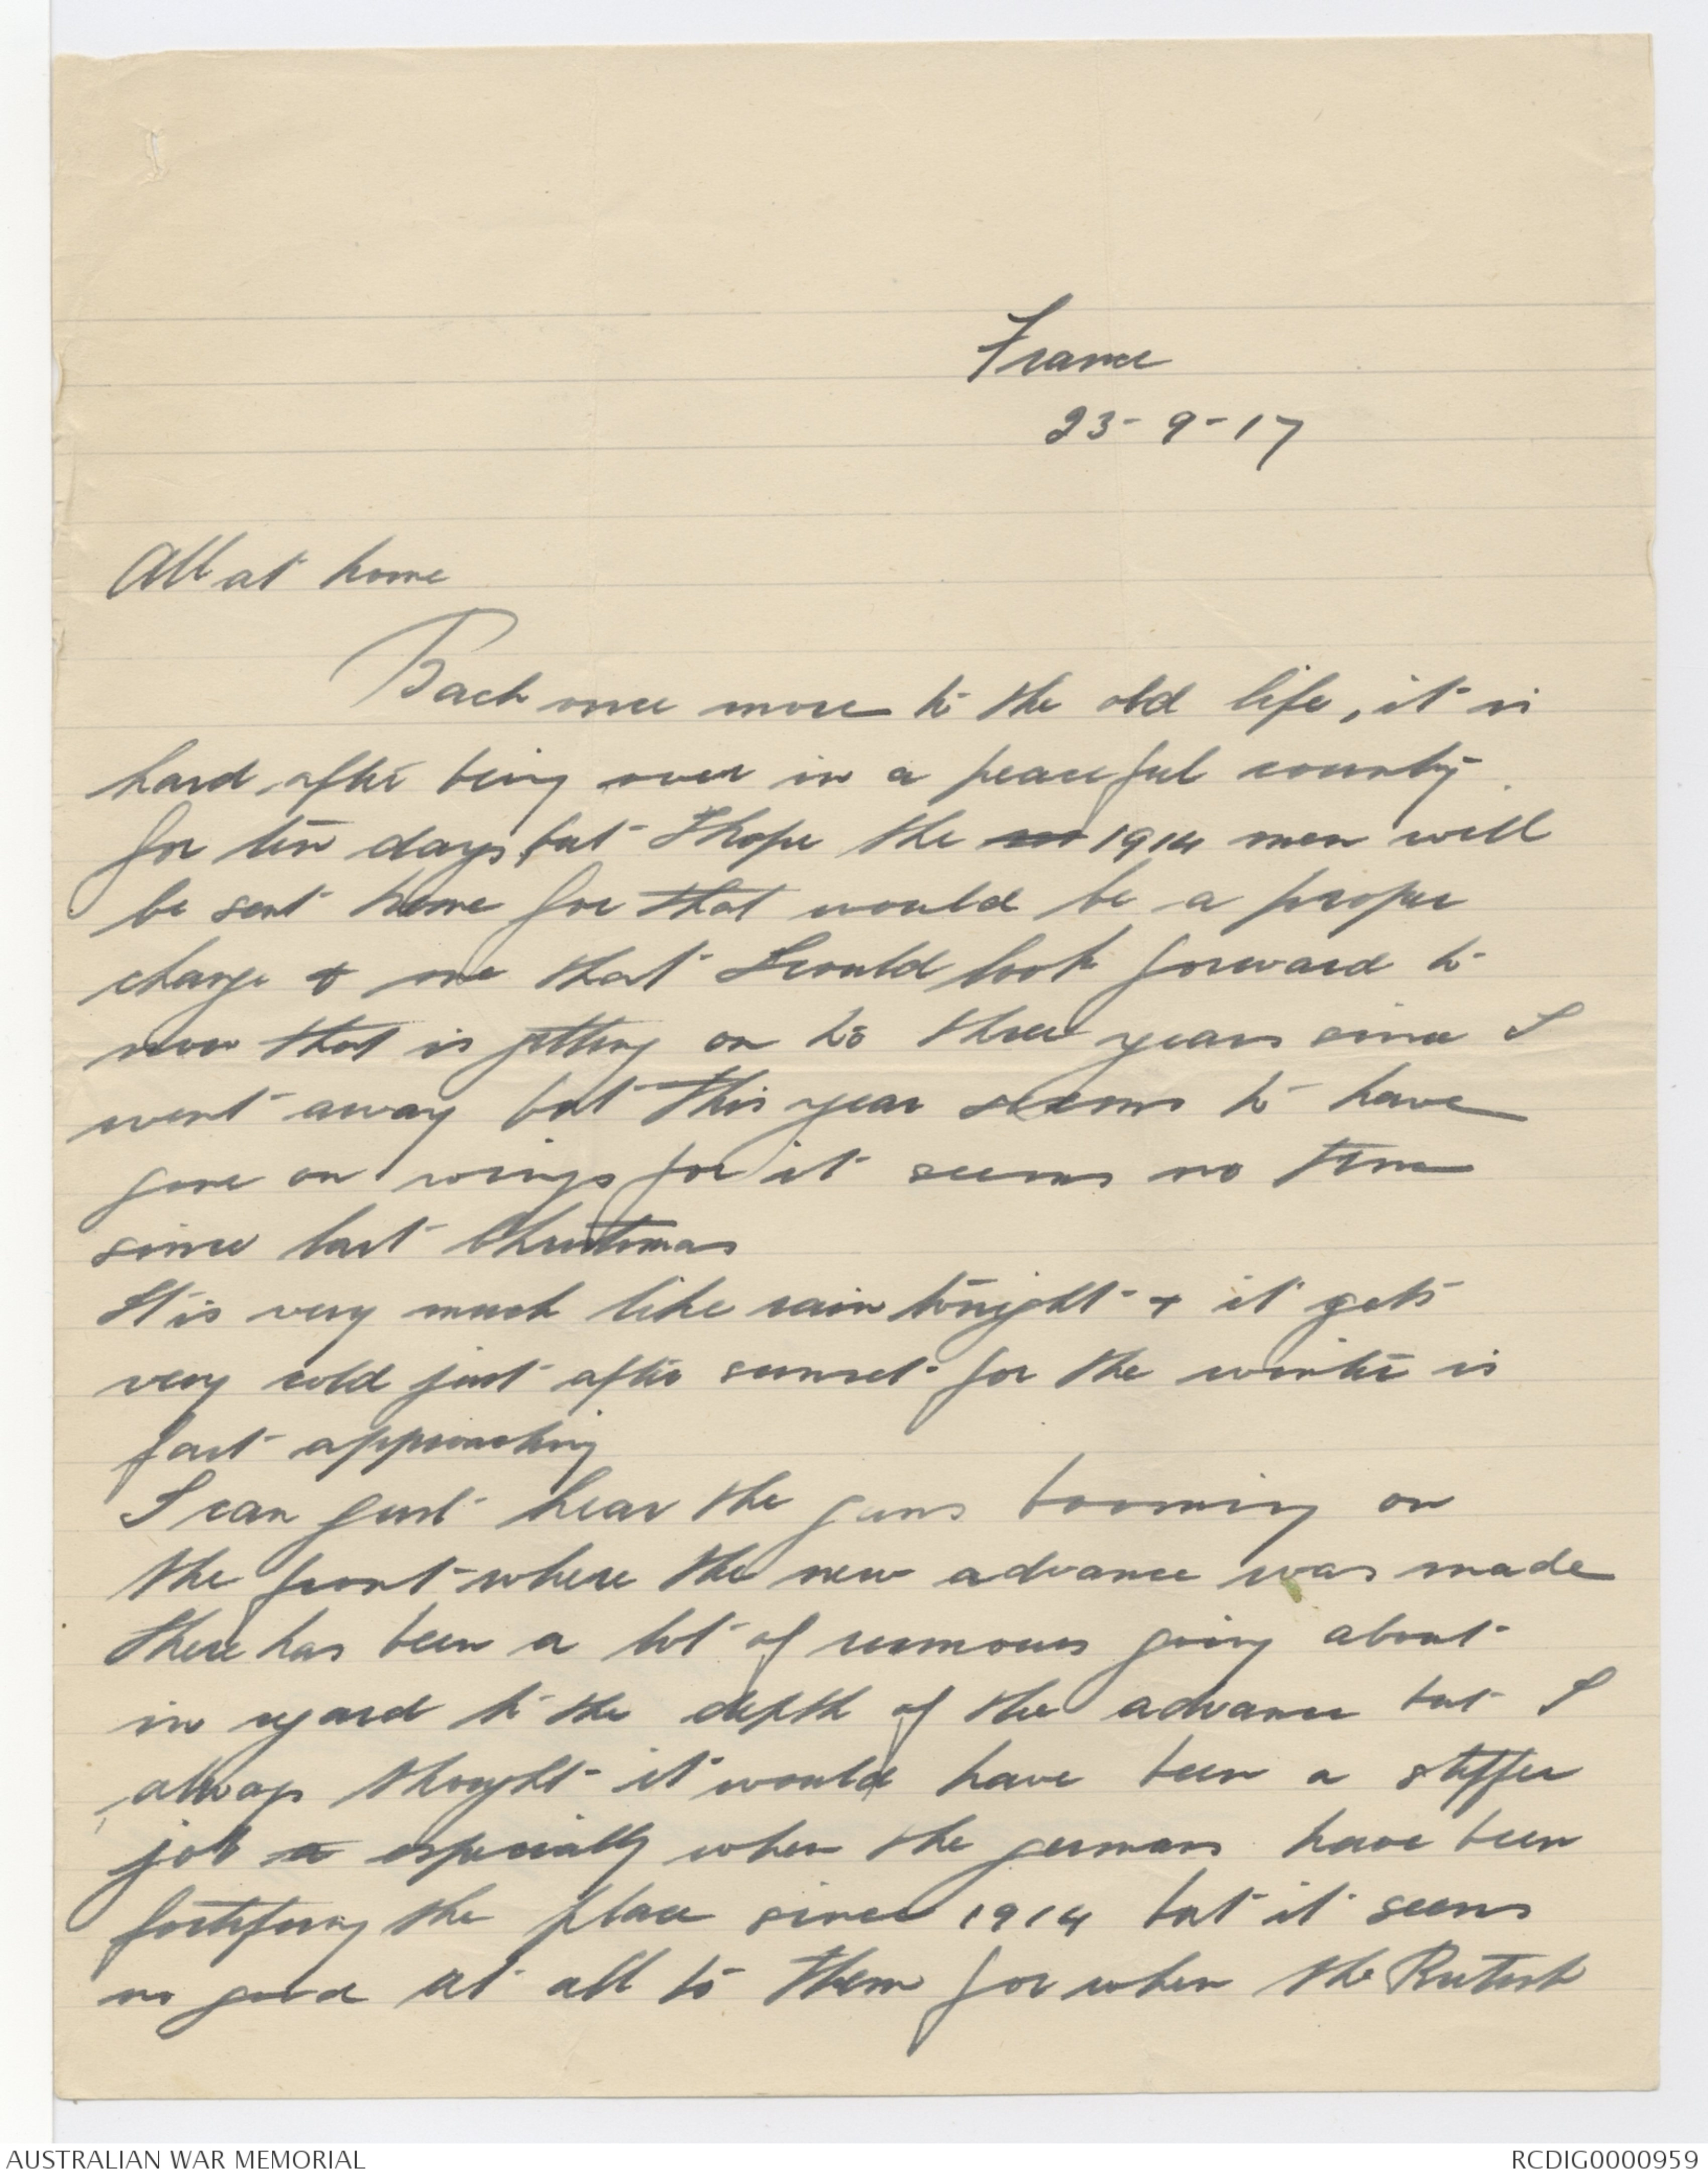 France
23-9-17
All at home
Back once more to the old life, it is
hard after being over in a peaceful country
for ten days, but I hope the 1914 men will
be sent home for that would be a proper
change & one that I could look forward to
now that is getting on to three years since I
went away but this year seems to have
gone on wings for it seems no time
since last Christmas
It is very much like rain tonight & it gets
very cold just after sunset for the winter is
fast approaching
I can just hear the guns booming on
the front where the new advance was made
there has been a lot of rumours going about
in regard to the depth of the advance but I
always thought it would have been a stiffer
job especially when the germans have been
fortifying the place since 1914 but it seems
no good at all to them for when the British
AUSTRALIAN WAR MEMORIAL
RCDIG0000959